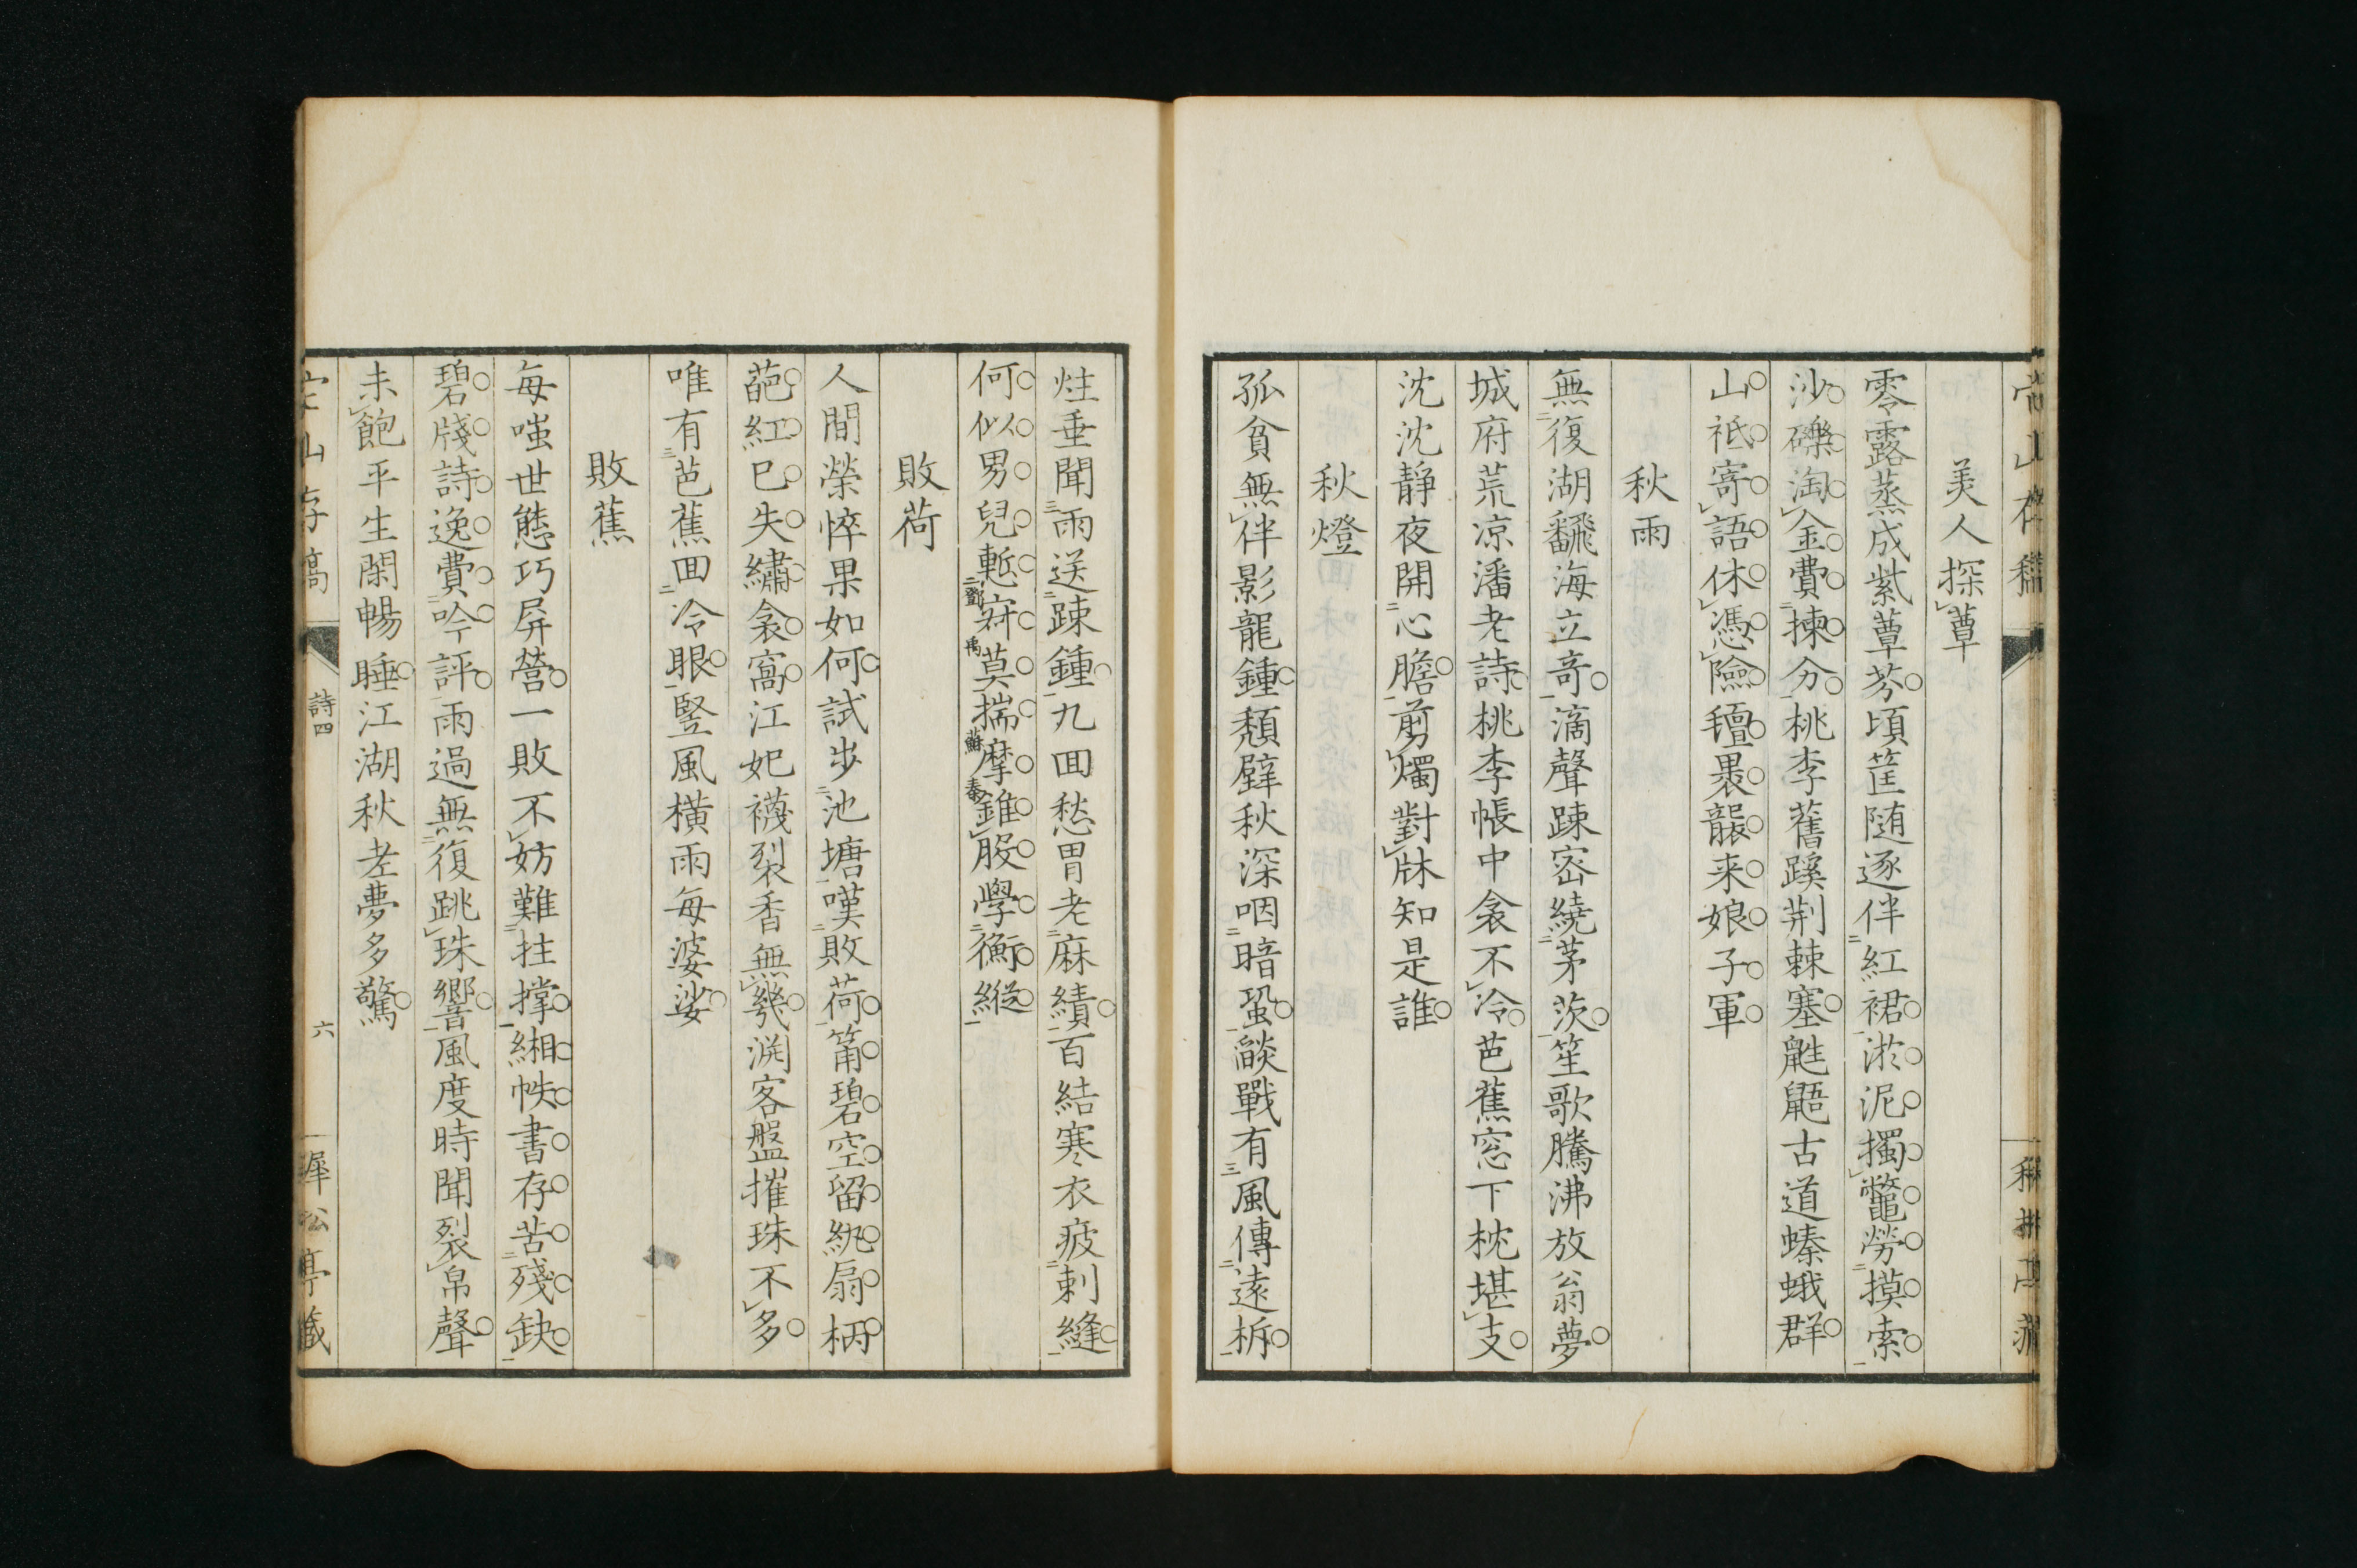 美人探蕈
零露蒸成紫蕈芬頃筐随逐伴紅裙淤泥擉鼈勞摸索
沙礫淘金費揀分桃李舊蹊荆棘塞鼪鼯古道螓蛾群
山祇寄語休憑險氊裹襲来娘子軍
秋雨
無復湖飜海立竒滴聲踈宻繞茅茨笙歌騰沸放翁夢
城府荒凉潘老詩桃李帳中衾不冷芭蕉窓下枕堪支
沈沈静夜開心膽剪燭對牀知是誰
秋燈
孤貧無伴影龍鍾頽壁秋深咽暗蛩燄戰有風傳遠柝
炷垂聞雨送踈鍾九囬愁胃老麻績百結寒衣疲刺縫
何似男兒慙寂莫揣摩錐股學衡縱
鄧禹
蘇秦
敗荷
人間榮悴果如何試歩池塘嘆敗荷筩碧空留紈扇柄
葩紅已失繡衾窩江妃襪裂香無幾淵客盤摧珠不多
唯有芭蕉囬冷眼豎風横雨每婆娑
敗蕉
每嗤世態巧屏營一敗不妨難拄撑緗帙書存苦殘缺
碧牋詩逸費吟評雨過無復跳珠響風度時聞裂帛聲
未飽平生閑暢睡江湖秋老夢多驚
山存稿
詩四
六
犀松亭藏